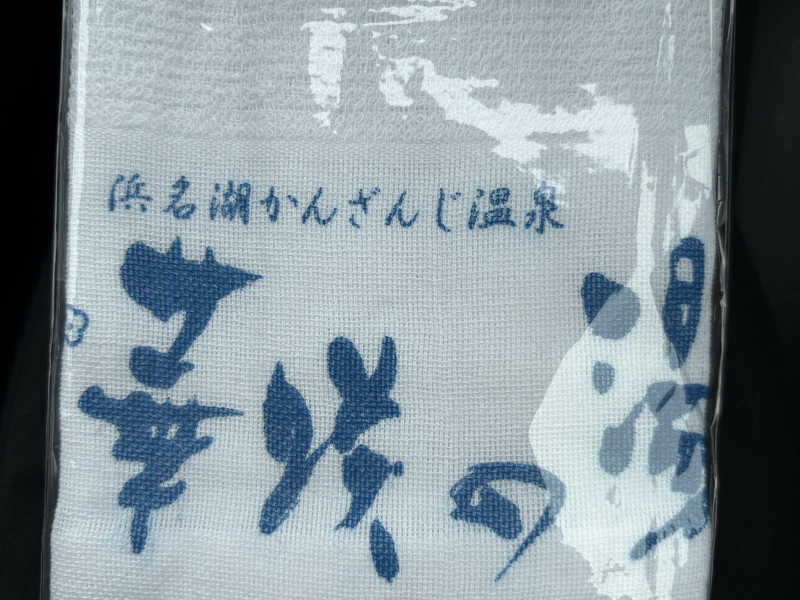 浜名湖かんざんじ温泉
華咲の湯